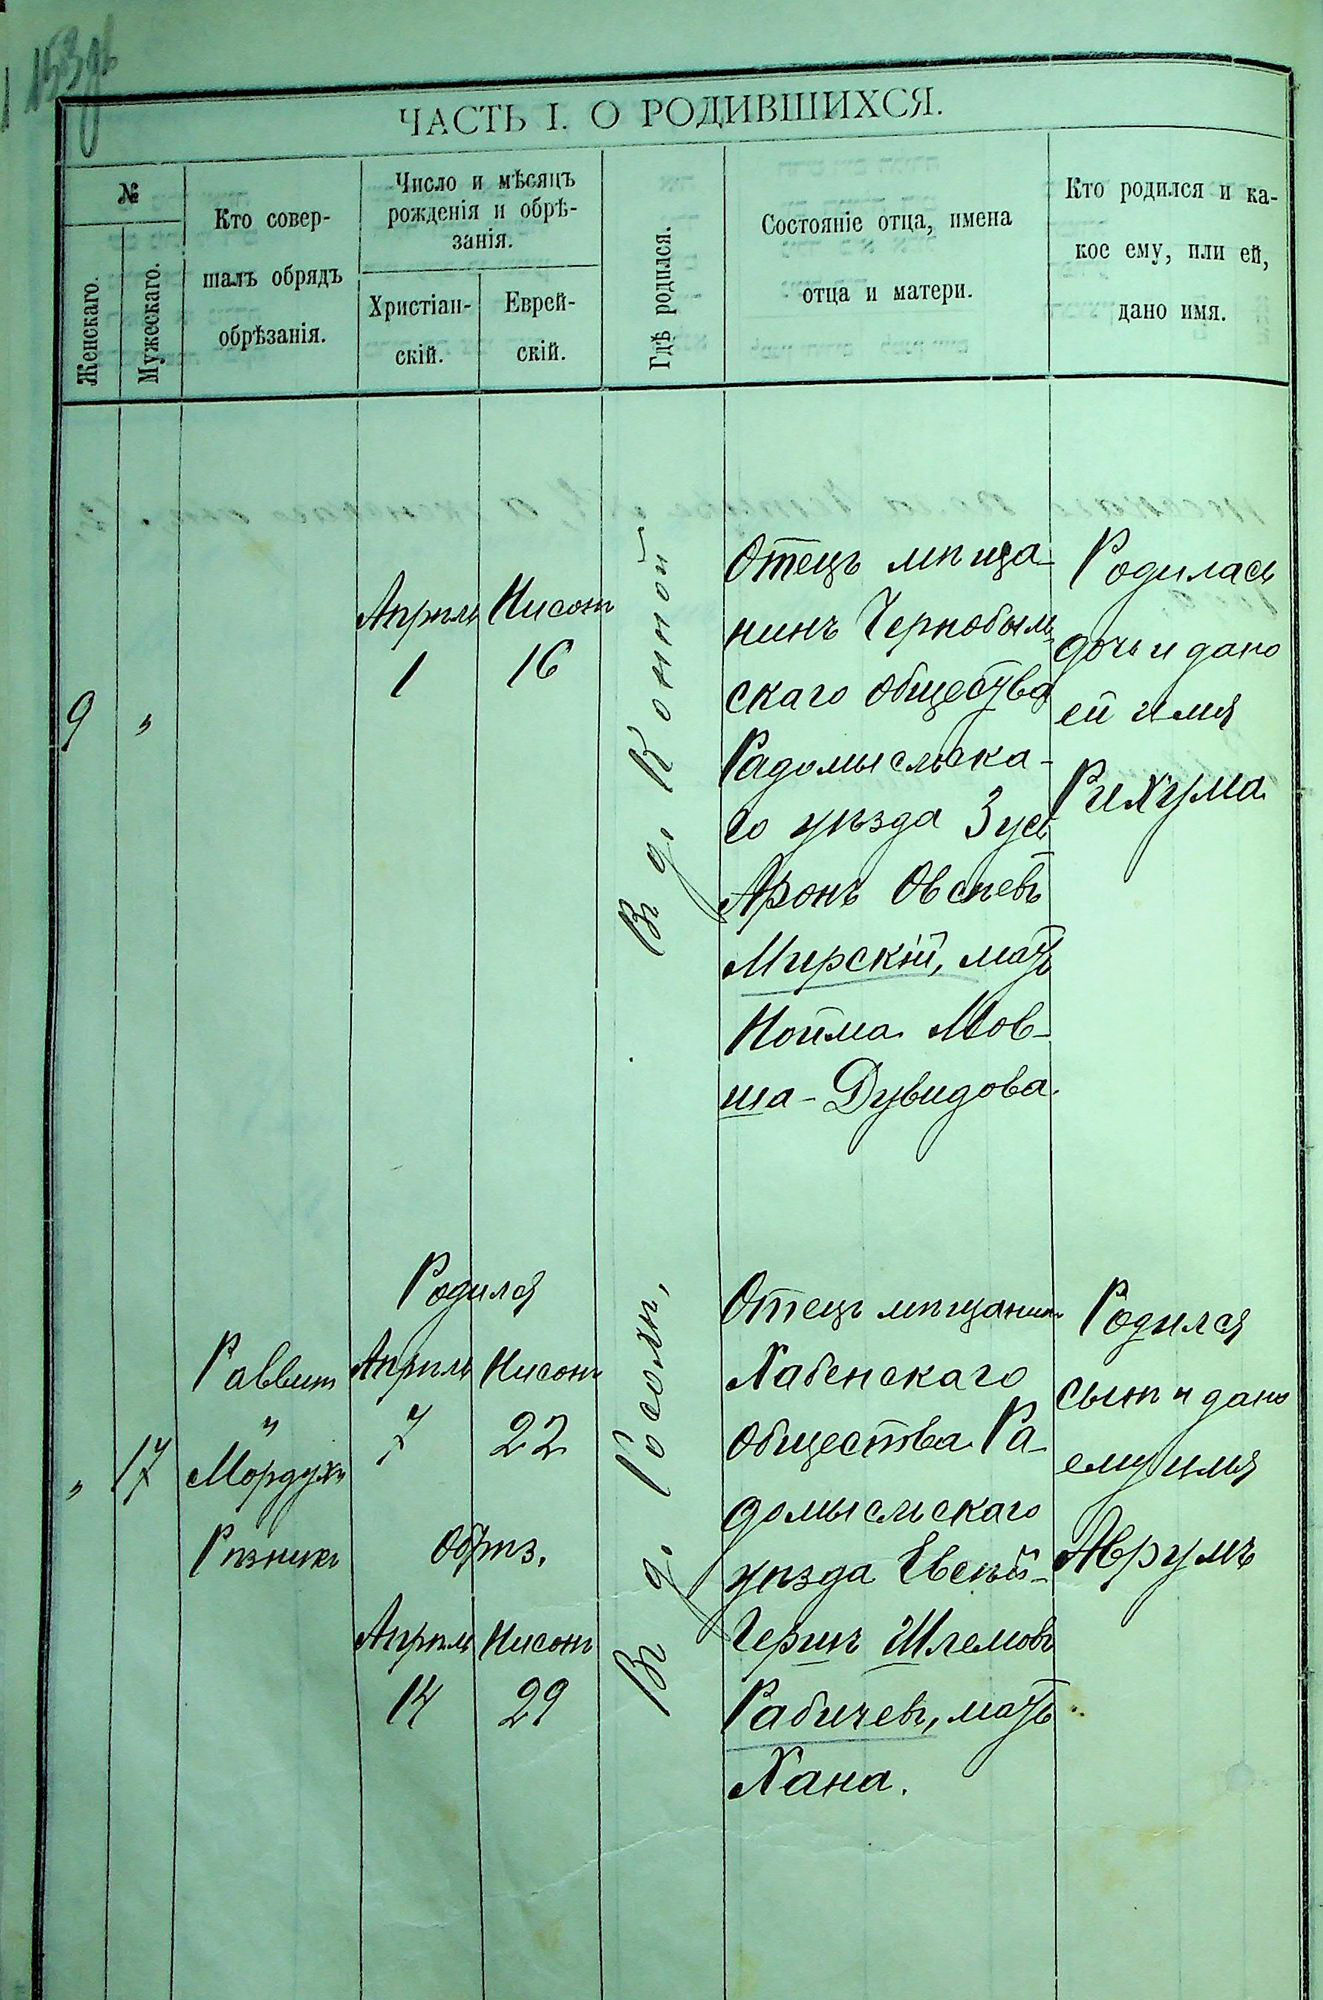 ЧАСТЬ I. О РОДИВШИХСЯ.
№
Женскаго.
Мужескаго.
Кто совер-
шалъ обрядъ
обрѣзанія.
Число и мѣсяцъ
рожденія и обрѣ-
занія.
Христіан-
скій.
Еврей-
скій.
Гдѣ родился.
Состояніе отца, имена
отца и матери.
Кто родился и ка-
кое ему, или ей,
дано имя.
9
"
Апрѣль
1
Нисонъ
16
Въ д. Конной
Отецъ мѣща-
нинъ Чернобыль-
скаго общества
Радомысльска-
го уѣзда Зусь
Аронъ Овсѣевъ
Мирскій, мать
Нойма Мов-
ша-Дувидова.
Родилась
дочь и дано
ей имя
Рихума
"
17
Раввинъ
"
Мордухъ
Рѣзникъ
Родился
Апрѣль Нисонъ
7 22
Обрѣз.
Апрѣль Нисонъ
14 29
Въ д.
Отецъ мѣщанинъ
Хабенскаго
общества Ра-
домысльскаго
уѣзда Евсѣй-
Герцъ Шлемовъ
Рабичевъ, мать
Хана.
Родился
сынъ и дано
ему имя
Аврумъ